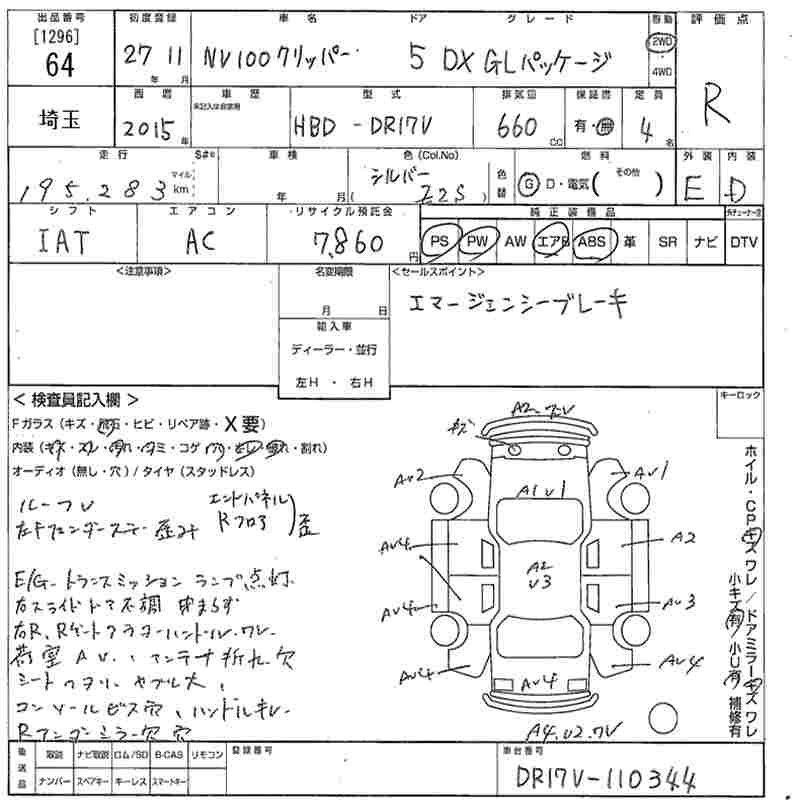 出品番号 初度登録 車名 ドア グレード 駆動 評価点
[1296]
64 27年 11月 NV100クリッパー 5 DX GLパッケージ 2WD 4WD R
西暦 車歴 型式 排気量 保証書 定員
未記入は自家用
埼玉 2015年 HBD - DR17V 660cc 有・無 4名
走行 S#※ 車検 色(Col.No) 燃料 外装 内装
195,283 マイル km 年 月 シルバー (Z2S) 色替 G D・電気(その他) E D
シフト エアコン リサイクル預託金 純正装備品
IAT AC 7,860円 PS PW AW エアB ABS 革 SR ナビ DTV
<注意事項> 名変期限 <セールスポイント>
月 日 エマージェンシーブレーキ
輸入車
ディーラー・並行
左H ・ 右H
<検査員記入欄> キーロック
Fガラス(キズ・飛石・ヒビ・リペア跡・X要)
内装(キズ・スレ・汚れ・シミ・コゲ・穴・割れ)
オーディオ(無し・穴)/タイヤ(スタッドレス)
ルーフU エンドパネル
Rフロア 歪
E/G トランスミッション ランプ点灯
左スライドドア不調
荷室AU、アンテナ折れ欠
シート
コンソールビス穴、ハンドルキレ
A2
キズ
AU2 AU1
A1U1
AU4 A2
A2
U3
AU4 AU3
AU4 AU4
AU4
A4.U2
ホイール・CPキズ ワレ/ドアミラーキズ ワレ
小キズ(有)/小U(有)/補修有
後送品 取説 ナビ取説 ロム/SD B-CAS リモコン 登録番号 車台番号
ナンバー スペアキー キーレス スマートキー DR17V-110344